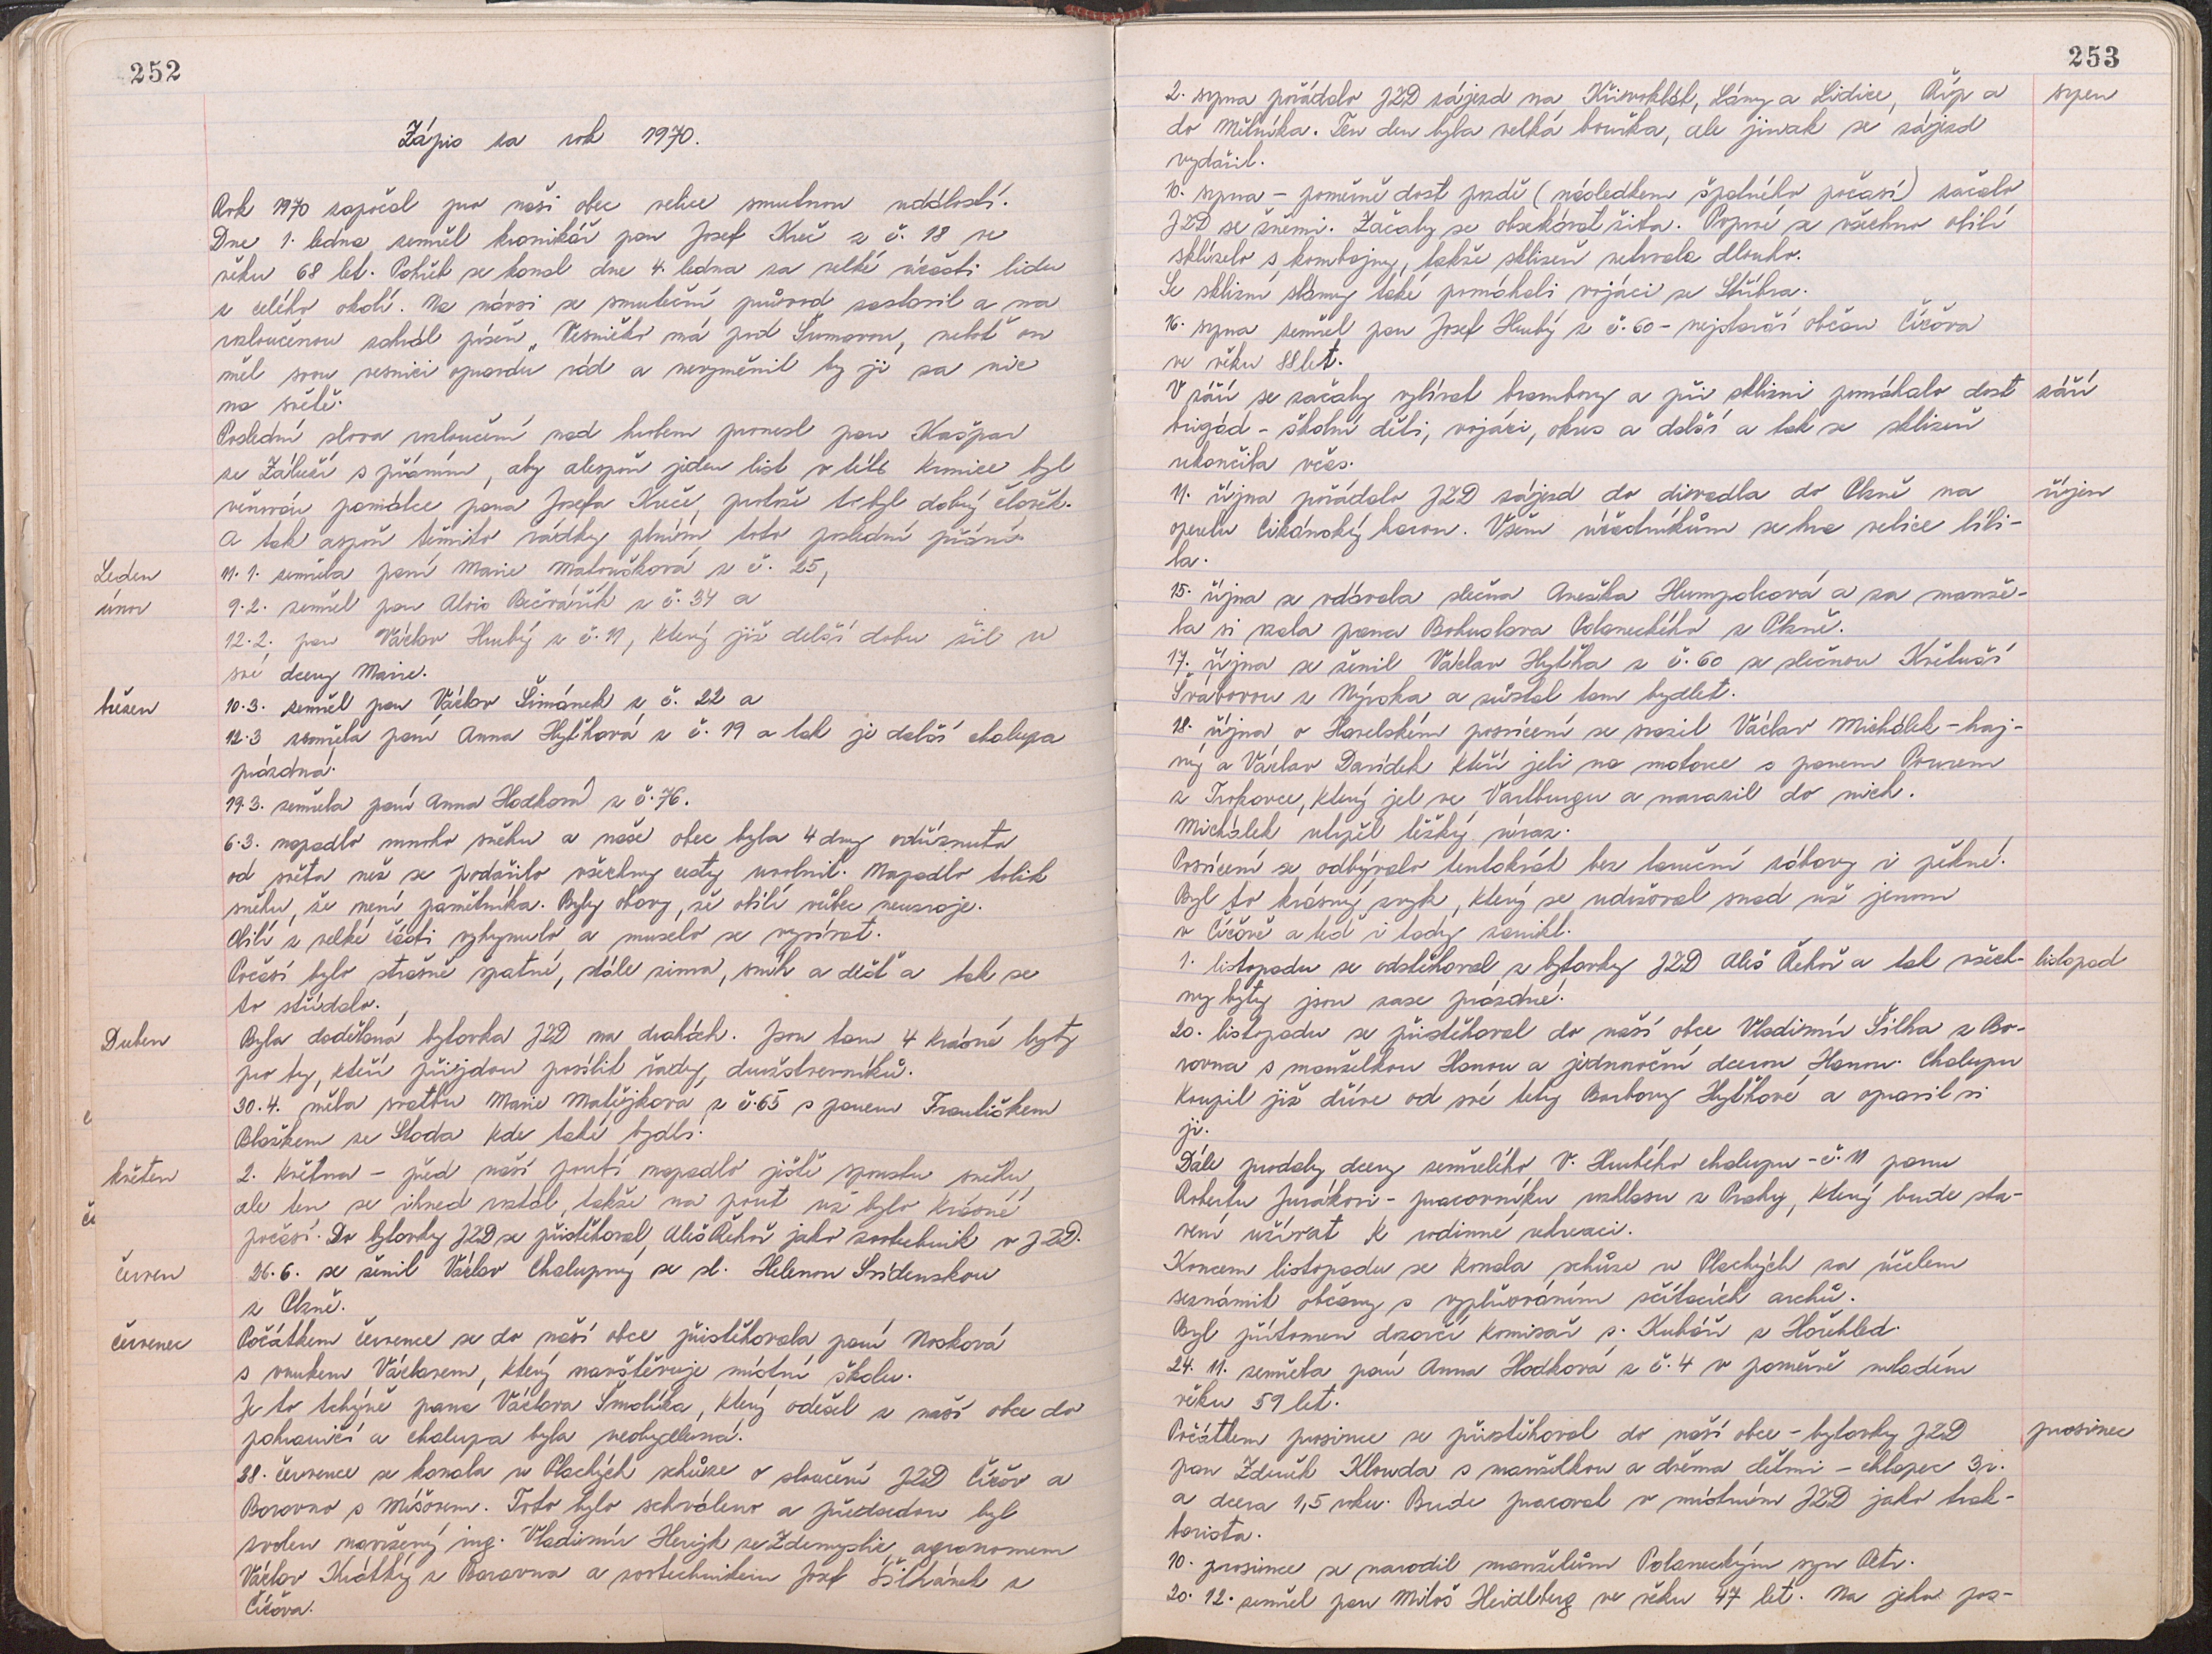 252
Zápis za rok 1970.
Rok 1970 započal pro naši obec velice smutnou událostí.
Dne 1. ledna zemřel kronikář pan Josef Kreč z č. 18 ve
věku 68 let. Pohřeb se konal dne 4. ledna za velké účasti lidu
z celého okolí. Na návsi se smuteční průvod zastavil a na
rozloučenou zahrál píseň „Vesničko má pod Šumavou, neboť on
měl svou vesnici opravdu rád a nevyměnil by ji za nic
na světě.
Poslední slova rozloučení nad hrobem pronesl pan Kašpar
ze Záluží s přáním, aby alespoň jeden list v této kronice byl
věnován památce pana Josefa Kreče, protože to byl dobrý člověk.
A tak aspoň těmito řádky plním toto poslední přání.
Leden 11. 1. zemřela paní Marie Matoušková z č. 25,
únor 9. 2. zemřel pan Alois Bečvářík z č. 34 a
12. 2. pan Václav Hrubý z č. 11, který již delší dobu žil u
své dcery Marie.
březen 10. 3. zemřel pan Václav Šimánek z č. 22 a
12. 3 zemřela paní Anna Hylťhová z č. 19 a tak je další chalupa
prázdná.
19. 3. zemřela paní Anna Hodková z č. 76.
6. 3. napadlo mnoho sněhu a naše obec byla 4 dny odříznuta
od světa než se podařilo všechny cesty uvolnit. Napadlo tolik
sněhu, že není pamětníka. Byly obavy, že obilí vůbec neuzraje.
Obilí z velké části vyhynulo a muselo se vysívat.
Počasí bylo strašně špatné, stále zima, sníh a déšť a tak se
to střídalo.
Duben Byla dodělaná bytovka JZD na drahách. Jsou tam 4 krásné byty
pro ty, kteří přijdou posílit řady družstevníků.
30. 4. měla svatbu Marie Matějková z č. 65 s panem Františkem
Blaškem ze Stoda kde také bydlí.
květen 2. května – před naší poutí napadlo ještě spoustu sněhu
ale ten se ihned roztál, takže na pouť už bylo krásné
počasí. Do bytovky JZD se přistěhoval Aleš Řehoř jako zootechnik v JZD.
červen 26. 6. se ženil Václav Chalupný se sl. Helenou Svídenskou
z Plzně.
červenec Počátkem července se do naší obce přistěhovala paní Nosková
s vnukem Václavem, který navštěvuje místní školu.
Je to tchýně pana Václava Smolíka, který odešel z naší obce do
pohraničí a chalupa byla neobydlená.
28. července se konala u Plachých schůze o sloučení JZD Číčov a
Borovno s Míšovem. Toto bylo schváleno a předsedou byl
zvolen navržený ing. Vladimír Herejk ze Zdemyslic, agronomem
Václav Krátký z Borovna a zootechnikem Josef Šilhánek z
Číčova.
253
2. srpna pořádalo JZD zájezd na Křivoklát, Lány a Lidice, Říp a srpen
do Mělníka. Ten den byla velká bouřka, ale jinak se zájezd
vydařil.
10. srpna – poměrně dost pozdě (následkem špatného počasí) začalo
JZD se žněmi. Začaly se obsekávat žita. Poprvé se všechno obilí
sklízelo s kombajny, takže sklizeň netrvala dlouho.
Se sklizní slámy také pomáhali vojáci ze Stříbra.
16. srpna zemřel pan Josef Hrubý z č. 60 – nejstarší občan Číčova
ve věku 88 let.
V září se začaly vybírat brambory a při sklizni pomáhalo dost září
brigád – školní děti, vojáci, okres a další a tak se sklizeň
ukončila včas.
11. října pořádalo JZD zájezd do divadla do Plzně na říjen
operetu Cikánský baron. Všem účastníkům se hra velice líbi-
la.
15. října se vdávala slečna Anežka Humpolcová a za manže-
la si vzala pana Bohuslava Polaneckého z Plzně.
17. října se ženil Václav Hylťha z č. 60 se slečnou Květuší
Švábovou z Nýrska a zůstal tam bydlet.
18. října o Havelském posvícení se srazil Václav Michálek – haj-
ný a Václav Davídek kteří jeli na motorce s panem Pourem
z Trokavce, který jel ve Vartburgu a narazil do nich.
Michálek utrpěl těžký úraz.
Posvícení se odbývalo tentokrát bez taneční zábavy i pěkné.
Byl to krásný zvyk, který se udržoval snad už jenom
v Číčově a teď i tady zanikl.
1. listopadu se odstěhoval z bytovky JZD Aleš Řehoř a tak všech- listopad
ny byty jsou zase prázdné.
20. listopadu se přistěhoval do naší obce Vladimír Šilha z Bo-
rovna s manželkou Hanou a jednoroční dcerou Hanou. Chalupu
koupil již dříve od své tety Barbory Hylťhové a opravil si
ji.
Dále prodaly dcery zemřelého V. Hrubého chalupu – č. 11 panu
Robertu Jurákovi – pracovníku rozhlasu z Prahy, který bude sta-
vení užívat k rodinné rekreaci.
Koncem listopadu se konala schůze u Plachých za účelem
seznámit občany s vyplňováním sčítacích archů.
Byl přítomen dozorčí komisař s. Kubář z Hořehled.
24. 11. zemřela paní Anna Hodková z č. 4 v poměrně mladém
věku 59 let.
Počátkem prosince se přistěhoval do naší obce – bytovky JZD prosinec
pan Zdeněk Klouda s manželkou a dvěma dětmi – chlapec 3 r.
a dcera 1,5 roku. Bude pracovat v místním JZD jako trak-
torista.
10. prosince se narodil manželům Polaneckým syn Petr.
20. 12. zemřel pan Miloš Heidlberg ve věku 47 let. Na jeho pos-